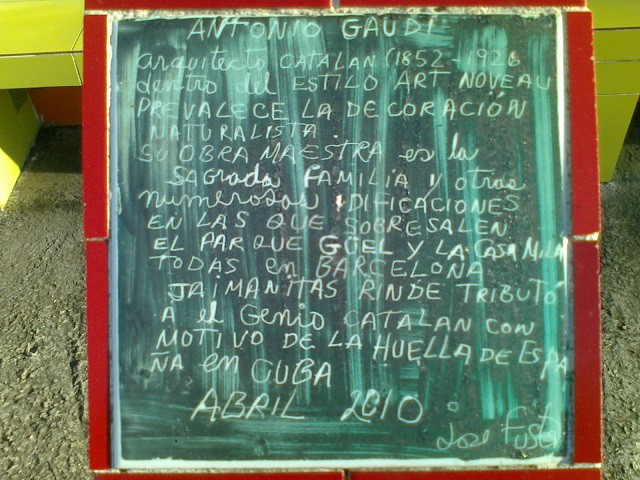 ANTONIO GAUDI
arquitecto CATALAN (1852-1926
dentro del ESTILO ART NOVEAU
PREVALECE LA DECORACIÓN
NATURALISTA.
SU OBRA MAESTRA es la
SAGRADA FAMILIA y otras
numerosas EDIFICACIONES
EN LAS QUE SOBRESALEN
EL PARQUE GÜEL Y LA CASA MILA
TODAS en BARCELONA
JAIMANITAS RINDE TRIBUTO
A el GENIO CATALAN CON
MOTIVO DE LA HUELLA DE ESPA
ÑA en CUBA
ABRIL 2010
Jose Fuster